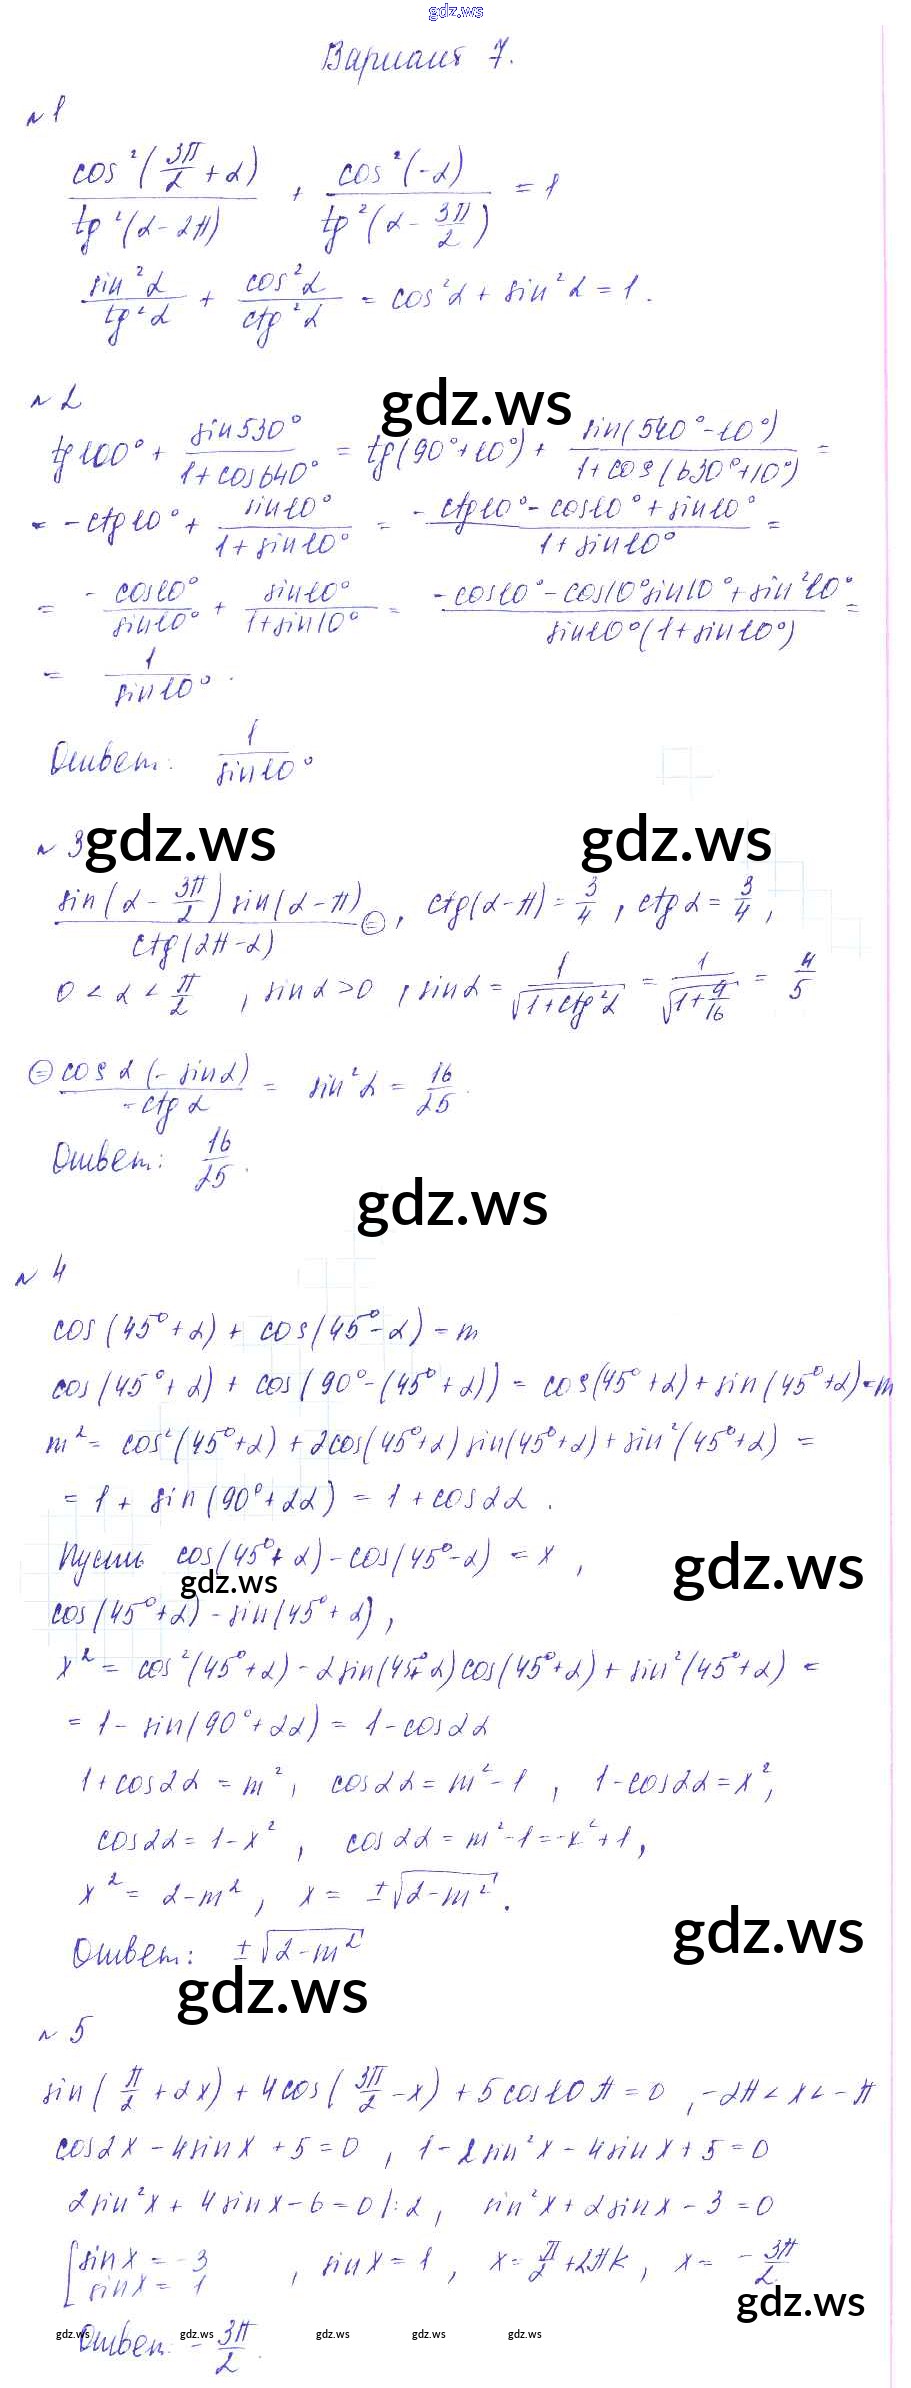 gdz.ws
Вариант 7.
N 1
cos²(3π/2 + α) / tg²(α - 2π) + cos²(-α) / tg²(α - 3π/2) = 1
sin²α / tg²α + cos²α / ctg²α = cos²α + sin²α = 1.
N 2
gdz.ws
tg100° + sin530° / (1 + cos640°) = tg(90° + 10°) + sin(540° - 10°) / (1 + cos(630° + 10°)) =
= -ctg10° + sin10° / (1 + sin10°) = (-ctg10° - cos10° + sin10°) / (1 + sin10°) =
= -cos10° / sin10° + sin10° / (1 + sin10°) = (-cos10° - cos10°sin10° + sin²10°) / (sin10°(1 + sin10°)) =
= 1 / sin10°.
Ответ: 1 / sin10°
N 3
gdz.ws gdz.ws
sin(α - 3π/2) sin(α - π) / ctg(2π - α) ⊜, ctg(α - π) = 3/4, ctgα = 3/4,
0 < α < π/2, sinα > 0, sinα = 1 / √(1 + ctg²α) = 1 / √(1 + 9/16) = 4/5
⊜ cosα(-sinα) / -ctgα = sin²α = 16/25.
Ответ: 16/25.
gdz.ws
N 4
cos(45° + α) + cos(45° - α) = m
cos(45° + α) + cos(90° - (45° + α)) = cos(45° + α) + sin(45° + α) = m
m² = cos²(45° + α) + 2cos(45° + α) sin(45° + α) + sin²(45° + α) =
= 1 + sin(90° + 2α) = 1 + cos2α.
Пусть cos(45° + α) - cos(45° - α) = x,
gdz.ws
gdz.ws
cos(45° + α) - sin(45° + α),
x² = cos²(45° + α) - 2sin(45° + α) cos(45° + α) + sin²(45° + α) =
= 1 - sin(90° + 2α) = 1 - cos2α
1 + cos2α = m², cos2α = m² - 1, 1 - cos2α = x²,
cos2α = 1 - x², cos2α = m² - 1 = -x² + 1,
x² = 2 - m², x = ±√(2 - m²).
gdz.ws
Ответ: ±√(2 - m²)
gdz.ws
N 5
sin(π/2 + 2x) + 4cos(3π/2 - x) + 5cos10π = 0, -2π < x < -π
cos2x - 4sinx + 5 = 0, 1 - 2sin²x - 4sinx + 5 = 0
2sin²x + 4sinx - 6 = 0 |:2, sin²x + 2sinx - 3 = 0
[ sinx = -3
sinx = 1, sinx = 1, x = π/2 + 2πk, x = -3π/2
gdz.ws
Ответ: -3π/2.
gdz.ws gdz.ws gdz.ws gdz.ws gdz.ws